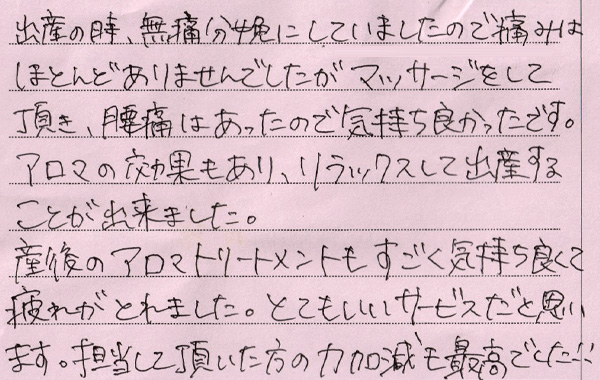 出産の時、無痛分娩にしていましたので痛みは
ほとんどありませんでしたが マッサージをして
頂き、腰痛はあったので気持ち良かったです。
アロマの効果もあり、リラックスして出産する
ことが出来ました。
産後のアロマトリートメントもすごく気持ち良くて
疲れがとれました。とてもいいサービスだと思い
ます。担当して頂いた方の力加減も最高でした!!